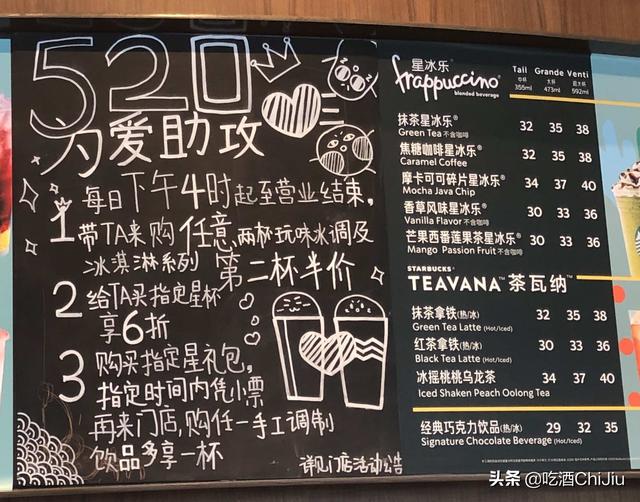 520
为爱助攻
每日下午4时起至营业结束,
1 带TA来购任意两杯玩味冰调及
冰淇淋系列 第二杯半价
2 给TA买指定星杯
享6折
3 购买指定星礼包,
指定时间内凭小票
再来门店,购任一手工调制
饮品多享一杯
详见门店活动公告
星冰乐®
frappuccino®
blended beverage
Tall Grande Venti
中杯 大杯 超大杯
355ml 473ml 592ml
抹茶星冰乐® 32 35 38
Green Tea 不含咖啡
焦糖咖啡星冰乐® 32 35 38
Caramel Coffee
摩卡可可碎片星冰乐® 34 37 40
Mocha Java Chip
香草风味星冰乐® 30 33 36
Vanilla Flavor 不含咖啡
芒果西番莲果茶星冰乐® 30 33 36
Mango Passion Fruit 不含咖啡
STARBUCKS®
TEAVANA™ 茶瓦纳™
抹茶拿铁(热/冰) 32 35 38
Green Tea Latte (Hot/Iced)
红茶拿铁(热/冰) 30 33 36
Black Tea Latte (Hot/Iced)
冰摇桃桃乌龙茶 34 37 40
Iced Shaken Peach Oolong Tea
经典巧克力饮品(热/冰) 29 32 35
Signature Chocolate Beverage (Hot/Iced)
头条 @吃酒ChiJiu